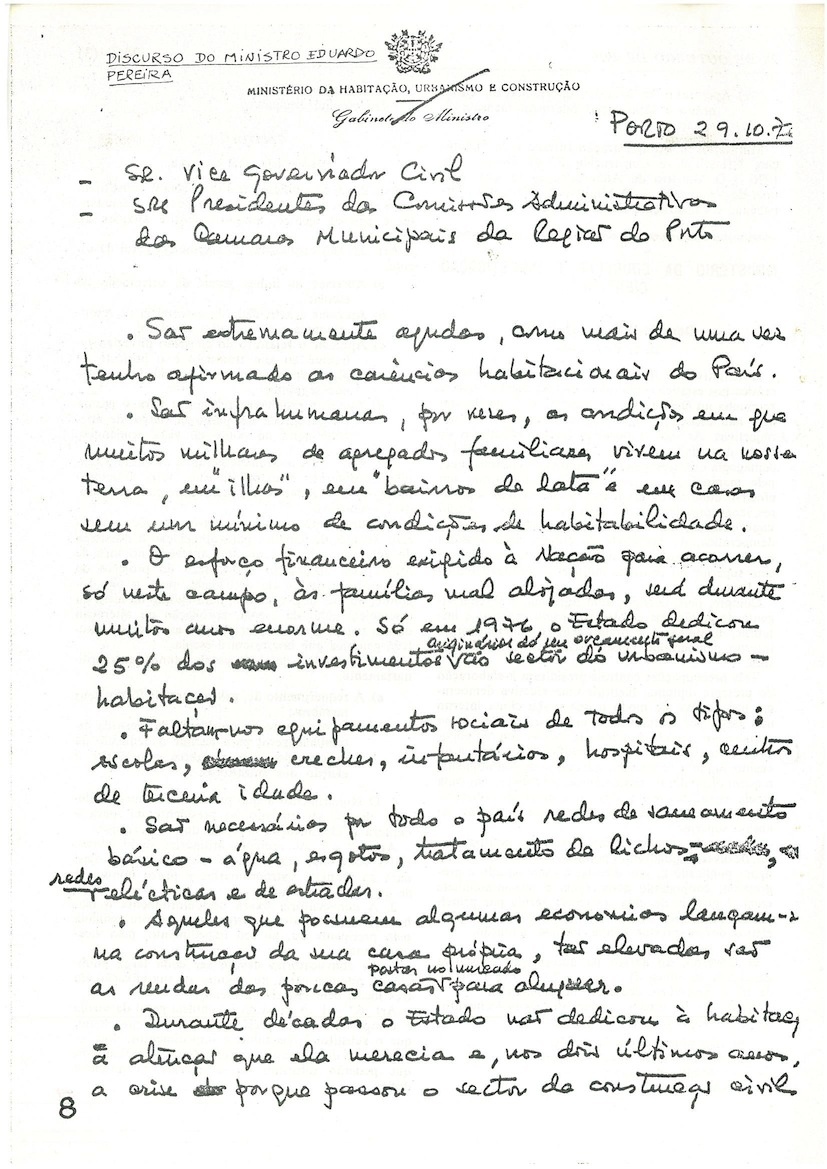 DISCURSO DO MINISTRO EDUARDO
PEREIRA
MINISTÉRIO DA HABITAÇÃO, URBANISMO E CONSTRUÇÃO
Gabinete do Ministro
PORTO 29.10.7
- Sr. Vice Governador Civil
- Srs Presidentes das Comissões Administrativas
das Camaras Municipais da Região do Porto
. São extremamente agudas, como mais de uma vez
tenho afirmado as carências habitacionais do País.
. São infrahumanas, por vezes, as condições em que
muitos milhares de agregados familiares vivem na nossa
terra, em "ilhas", em "bairros de lata" e em casas
sem um mínimo de condições de habitabilidade.
. O esforço financeiro exigido à Nação para acorrer,
só neste campo, às famílias mal alojadas, será durante
muitos anos enorme. Só em 1976 o Estado dedicou
originários do seu orçamento geral
25% dos investimentos ao sector do urbanismo -
habitação.
. Faltam-nos equipamentos sociais de todos os tipos:
escolas, creches, infantários, hospitais, centros
de terceira idade.
. São necessários por todo o país redes de saneamento
básico - água, esgotos, tratamento de lichos,
redes
eléctricas e de estradas.
. Aqueles que possuem algumas economias lançam-s
na construção da sua casa própria, tão elevadas são
postas no mercado
as rendas das poucas casas para alugar.
. Durante décadas o Estado não dedicou à habitaç
a atenção que ela merecia e, nos dois últimos anos,
a crise porque passou o sector da construção civil
8